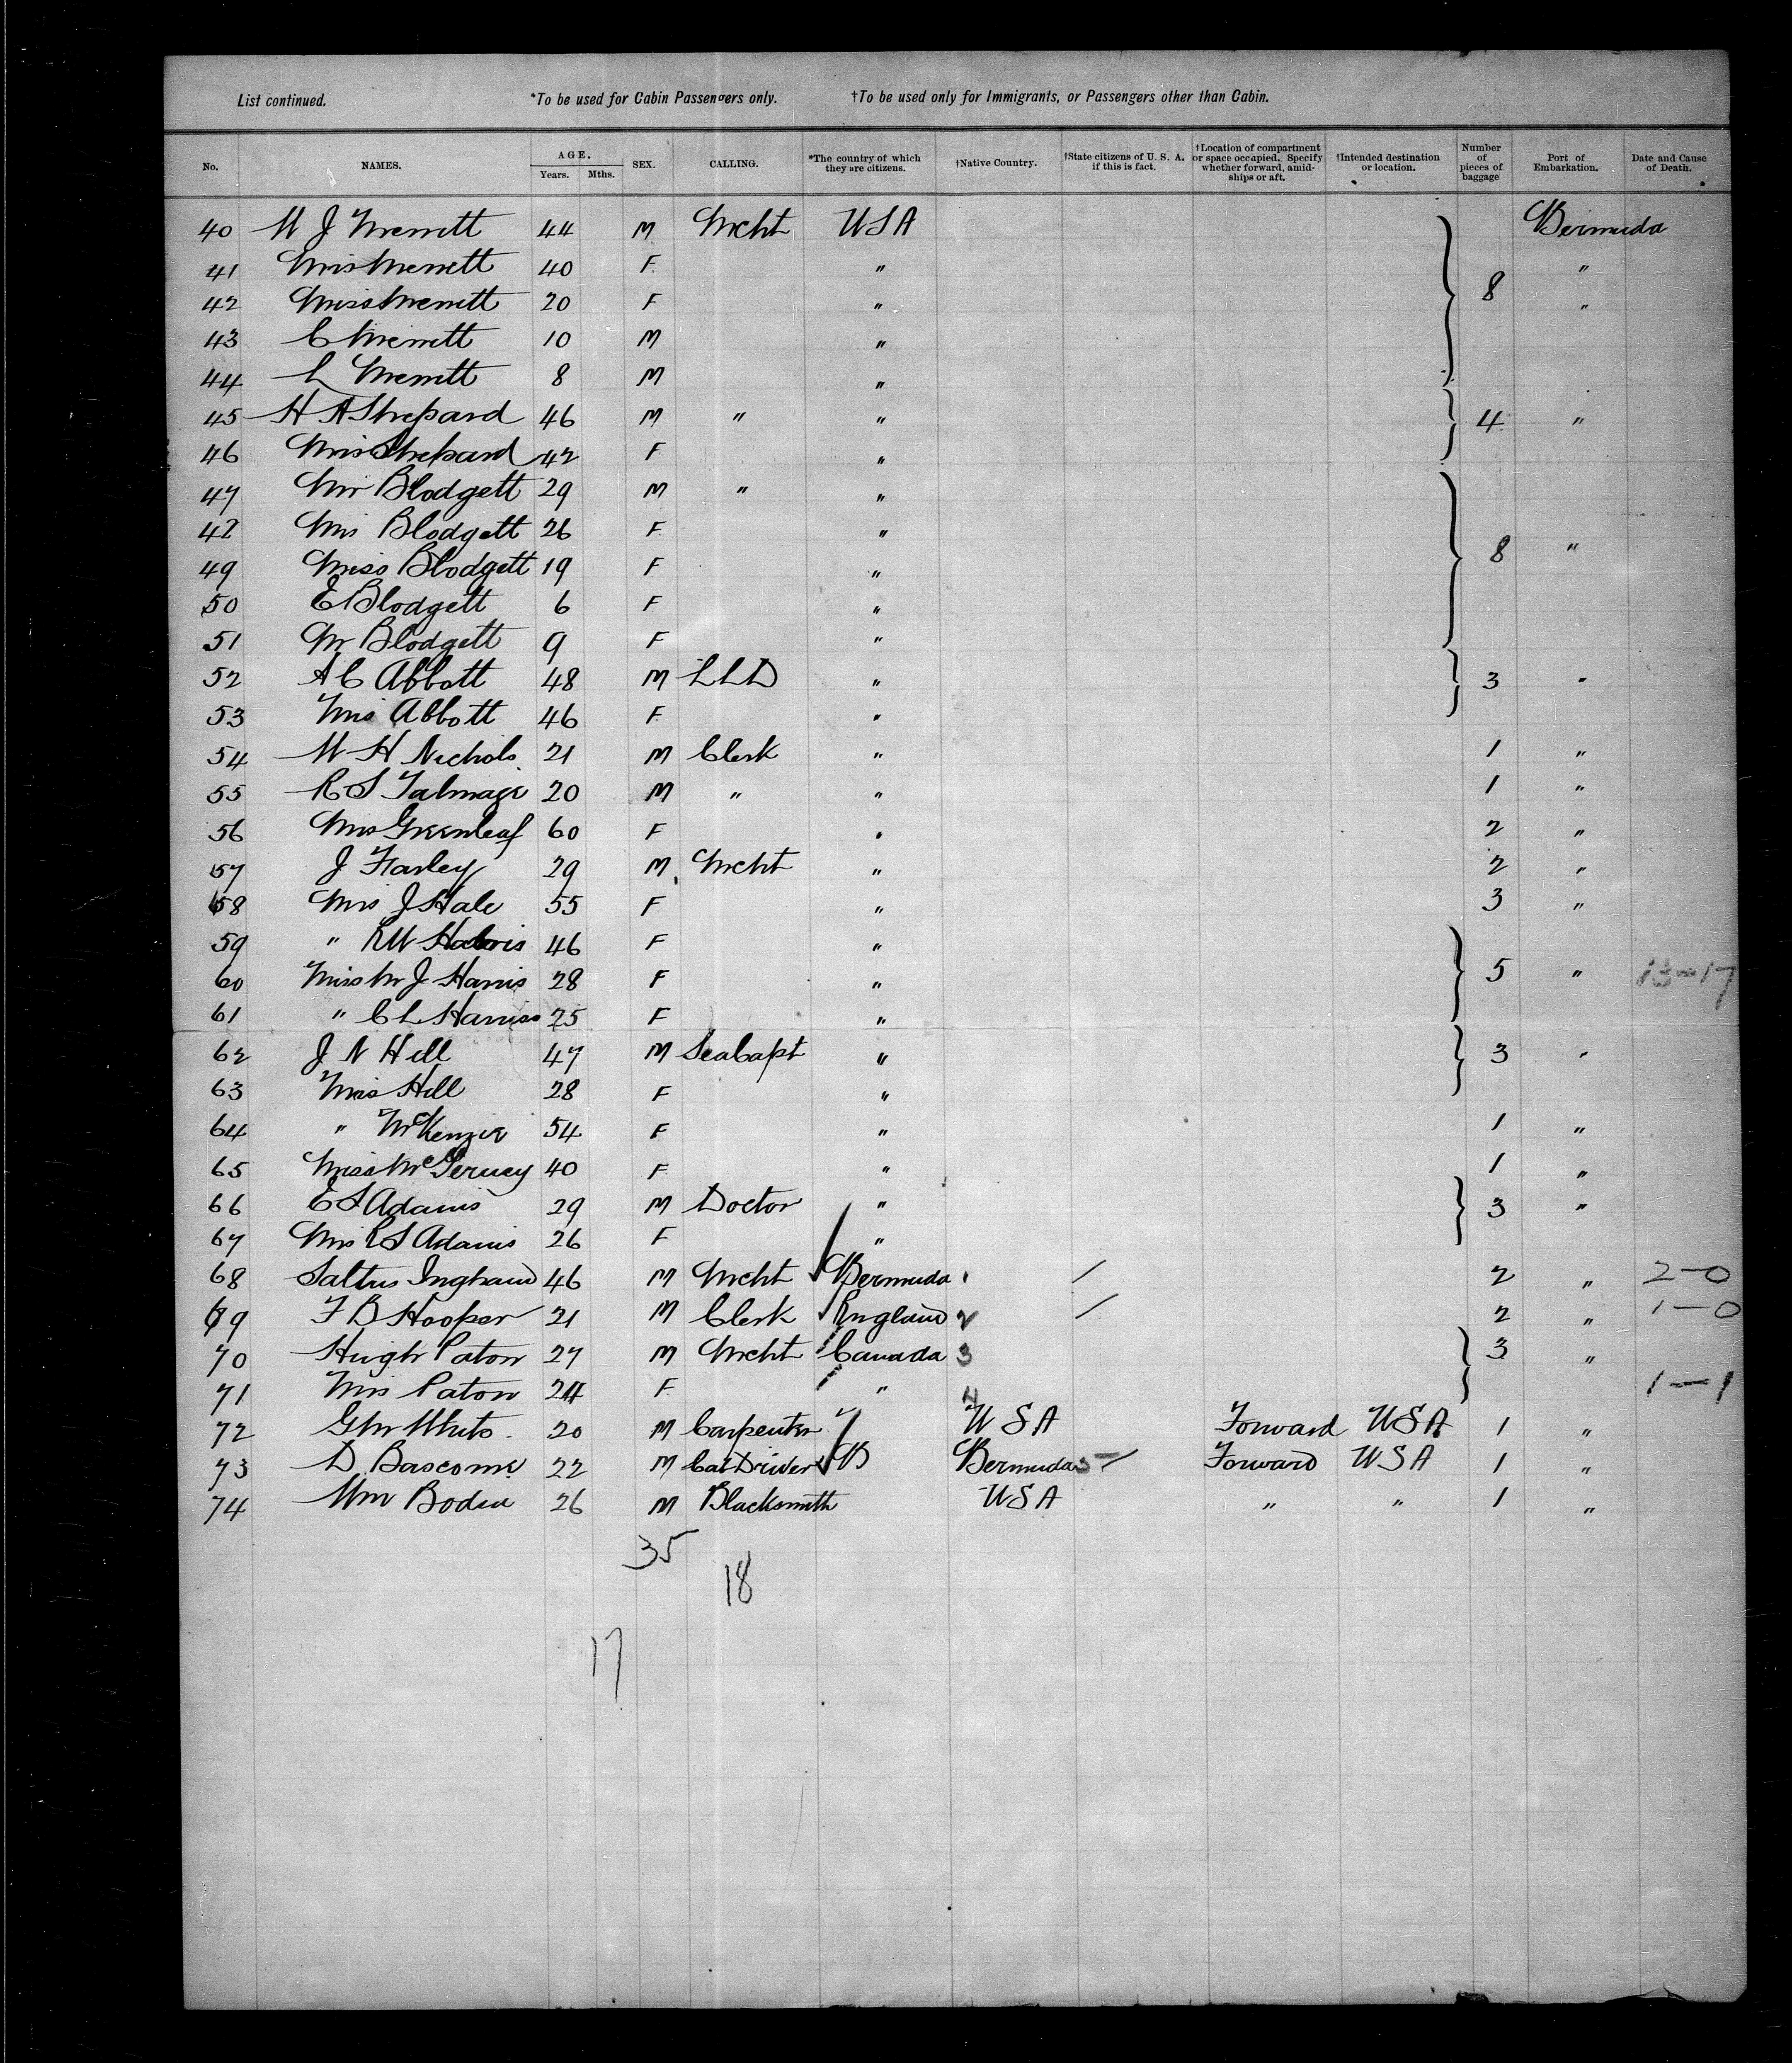 List continued. *To be used for Cabin Passengers only. †To be used only for Immigrants, or Passengers other than Cabin.
No. NAMES. AGE. Years. Mths. SEX. CALLING. *The country of which they are citizens. †Native Country. †State citizens of U. S. A. if this is fact. †Location of compartment or space occupied. Specify whether forward, amidships or aft. †Intended destination or location. Number of pieces of baggage Port of Embarkation. Date and Cause of Death.
40 W J Merritt 44 M Mcht USA Bermuda
41 Mrs Merritt 40 F " "
42 Miss Merritt 20 F " 8 "
43 C Merritt 10 M "
44 L Merritt 8 M "
45 H A Shepard 46 M " " 4 "
46 Mrs Shepard 42 F "
47 Mr Blodgett 29 M " "
48 Mrs Blodgett 26 F "
49 Miss Blodgett 19 F " 8 "
50 E Blodgett 6 F "
51 M Blodgett 9 F "
52 A C Abbott 48 M LLD " 3 "
53 Mrs Abbott 46 F "
54 W H Nichols 21 M Clerk " 1 "
55 R S Talmage 20 M " " 1 "
56 Mrs Greenleaf 60 F " 2 "
57 J Farley 29 M Mcht " 2 "
58 Mrs J Hale 55 F " 3 "
59 " R W Harris 46 F "
60 Miss M J Harris 28 F " 5 " 13-17
61 " C L Harriss 25 F "
62 J N Hill 47 M Sea Capt " 3 "
63 Mrs Hill 28 F "
64 " McKenzie 54 F " 1 "
65 Miss 40 F " 1 "
66 E S Adams 29 M Doctor " 3 "
67 Mrs E S Adams 26 F "
68 Saltus Ingham 46 M Mcht Bermuda 1 / 2 " 2-0
69 F B Hooper 21 M Clerk England 2 / 2 " 1-0
70 Hugh Paton 27 M Mcht Canada 3 3 "
71 Mrs Paton 24 F " 4 1-1
72 G M White 20 M Carpenter " USA Forward USA 1 "
73 D Bascome 22 M Car Driver B Bermuda 5 / Forward USA 1 "
74 Wm Boden 26 M Blacksmith USA " " 1 "
35
18
17